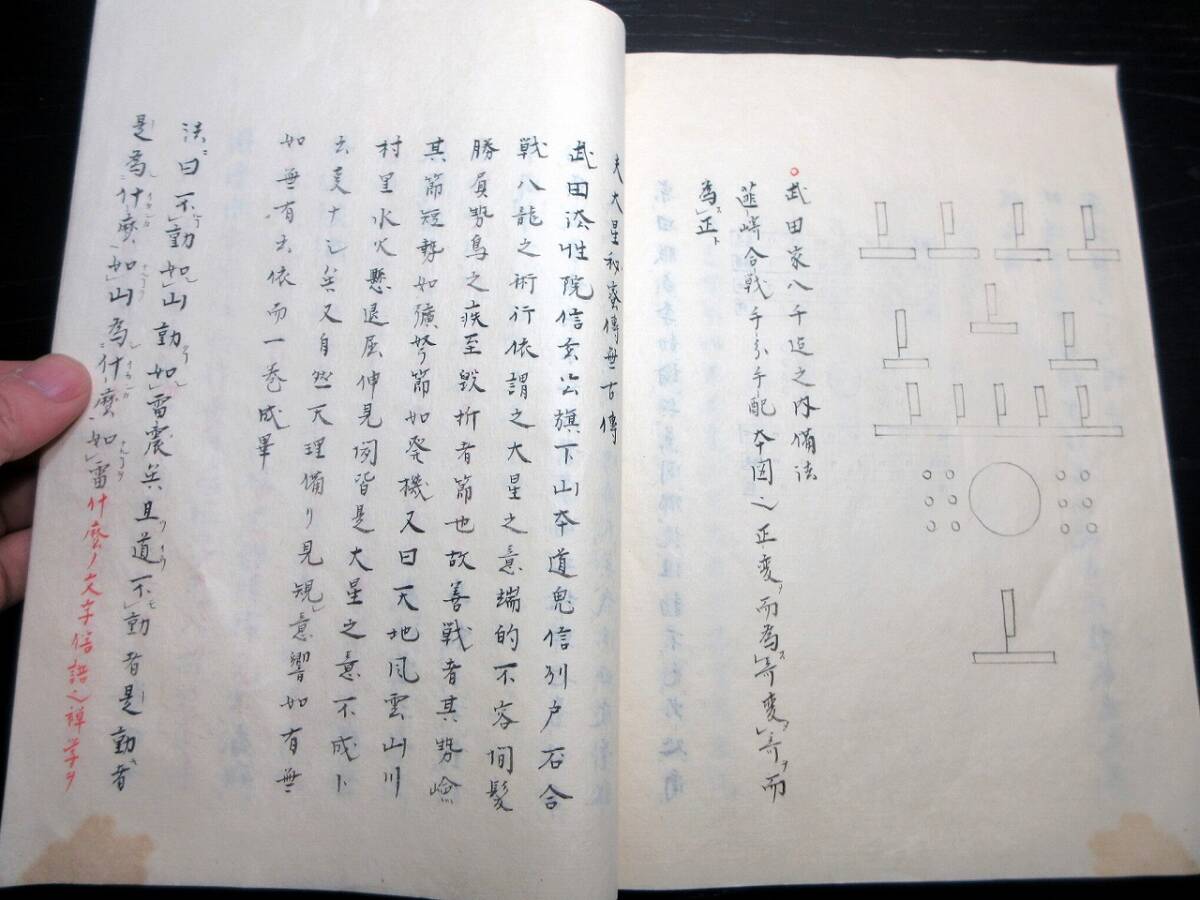 武田家八千迄之内備法
韮崎合戦手分手配本図之正変ヲ而為スレ奇変レ奇ヲ而
為スレ正ト
夫大星秘密傳無古傳
武田法性院信玄公旗下山本道鬼信列戸石合
戦八龍之術行依謂之大星之意端的不容間髪
勝負勢鳥之疾至毀折者節也故善戦者其勢嶮
其節短勢如彍弩節如発機又曰天地風雲山川
村里水火懸退屈伸見聞皆是大星之意不成ト
云叓ナシ矣又自然天理備リ見規意響如有無
如無有去依而一巻成畢
法ニ曰不動如山動如雷震矣且道不動者是動者
是為什麼如山為什麼如雷什麼ノ文字俗語之禅学ヲ